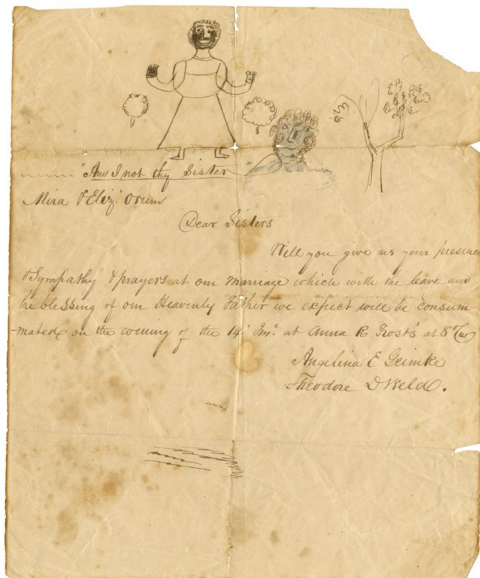 "Am I not thy Sister"
Mira & Eliz. Orum
Dear Sisters
Will you give us your presence
& Sympathy & prayers at our marriage which with the leave and
the blessing of our Heavenly Father we expect will be consum
-mated on the evening of the 14 Ins. at Anna R Frost's at 8
Angelina E Grimke
Theodore D Weld.